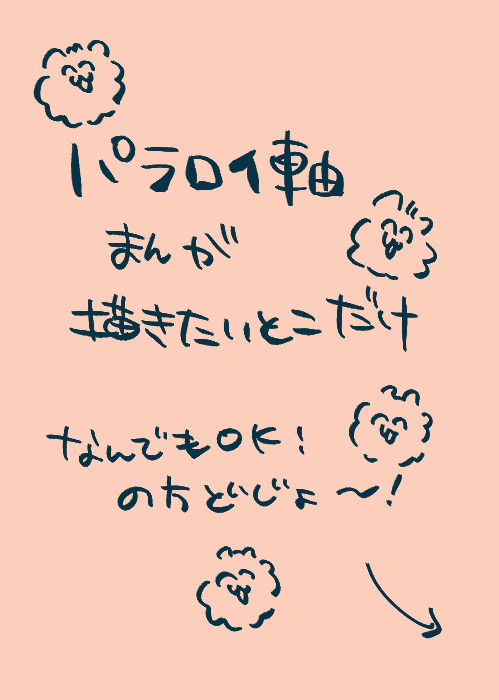 パラロイ軸
まんが
描きたいとこだけ
なんでもOK!
のちどじょ〜!